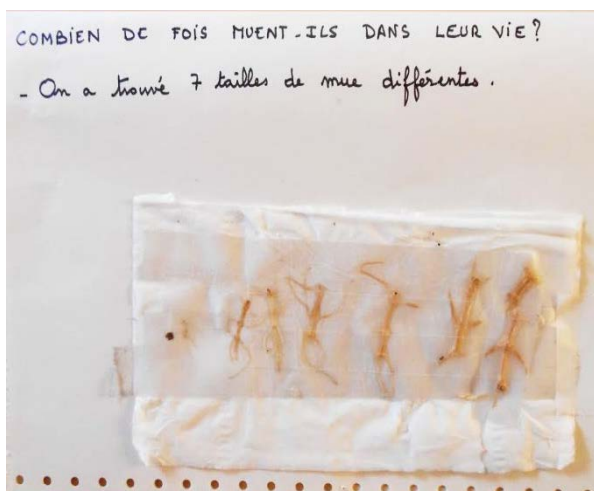 COMBIEN DE FOIS MUENT-ILS DANS LEUR VIE?
- On a trouvé 7 tailles de mue différentes.